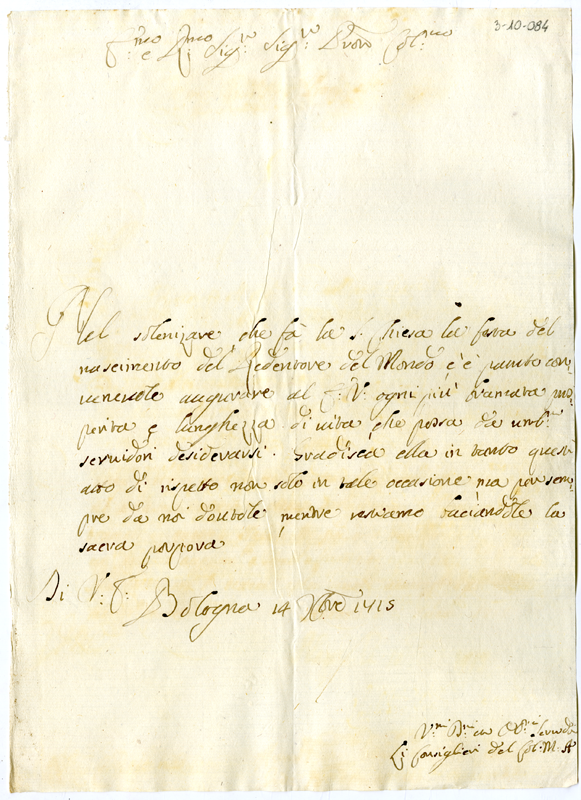 3-10-084
E.mo e R.mo Sig.re Sig.re Pron Col.mo
Nel solenizare che fà la S. Chiesa la festa del
nascimento del Redentore del Mondo c'è paruto con,
uenevole augurare al E: V: ogni più bramata pros
perita e lunghezza di vita, che possa da umil.i
seruidori desiderarsi. Gradisca ella in tanto quest
atto di rispetto non solo in tale occasione ma per sem,
pre da noi douutole, mentre restiamo baciandole la
sacra porpora
Di V: E:
Bologna 14 Xbre 1715
Li Consiglieri del Col: M: A